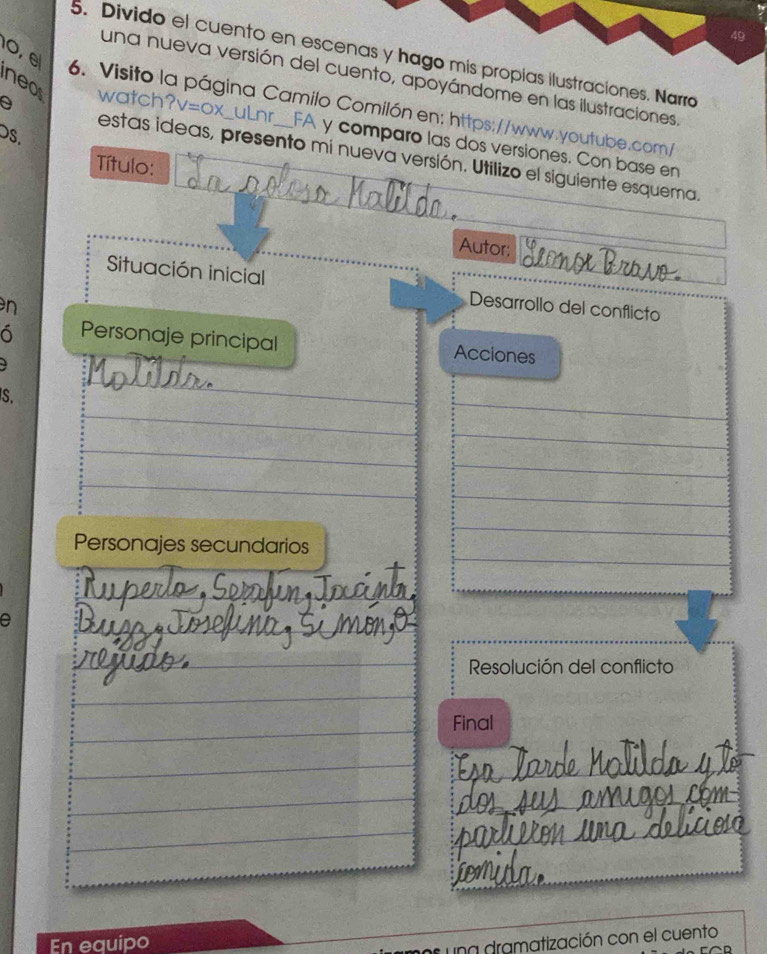 49
5. Divido el cuento en escenas y hago mis propias ilustraciones. Narro
una nueva versión del cuento, apoyándome en las ilustraciones.
6. Visito la página Camilo Comilón en: https://www.youtube.com/
watch?v=ox_uLnr__FA y comparo las dos versiones. Con base en
estas ideas, presento mi nueva versión. Utilizo el siguiente esquema.
no, el
íneos.
e
os.
en
ó
e
s.
e
Título: La golosa Matilda.
Autor: Leonor Bravo.
Situación inicial
Personaje principal
Matilda.
Personajes secundarios
Ruperto, Serafín, Jacinta,
Buggy, Josefina, Simón, O-
rejudo.
Desarrollo del conflicto
Acciones
Resolución del conflicto
Final
Esa tarde Matilda y to-
dos sus amigos com-
partieron una deliciosa
comida.
En equipo
una dramatización con el cuento
EGB